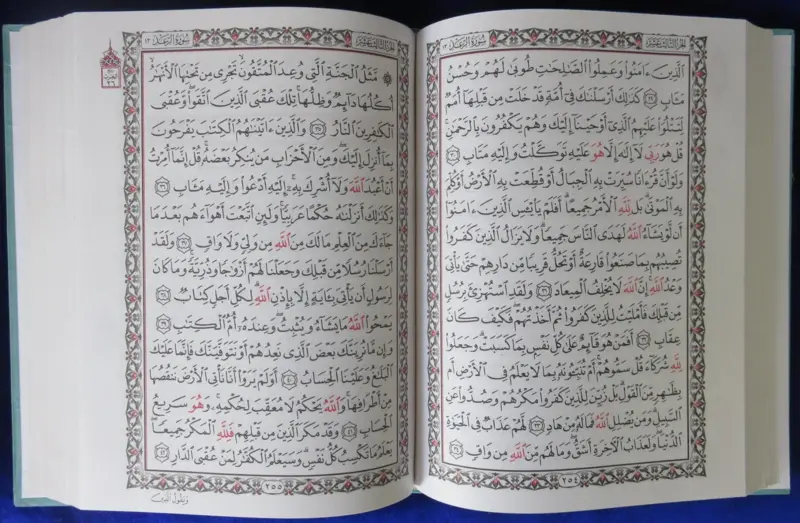 الجزء الثالث عشر
سورة الرعد ١٣
الَّذِينَ ءَامَنُوا وَعَمِلُوا الصَّٰلِحَٰتِ طُوبَىٰ لَهُمْ وَحُسْنُ
مَـَٔابٍ ٢٩ كَذَٰلِكَ أَرْسَلْنَٰكَ فِي أُمَّةٍ قَدْ خَلَتْ مِن قَبْلِهَا أُمَمٌ
لِّتَتْلُوَا عَلَيْهِمُ الَّذِي أَوْحَيْنَا إِلَيْكَ وَهُمْ يَكْفُرُونَ بِالرَّحْمَٰنِ
قُلْ هُوَ رَبِّي لَا إِلَٰهَ إِلَّا هُوَ عَلَيْهِ تَوَكَّلْتُ وَإِلَيْهِ مَتَابِ ٣٠
وَلَوْ أَنَّ قُرْءَانًا سُيِّرَتْ بِهِ الْجِبَالُ أَوْ قُطِّعَتْ بِهِ الْأَرْضُ أَوْ كُلِّمَ
بِهِ الْمَوْتَىٰ بَل لِّلَّهِ الْأَمْرُ جَمِيعًا أَفَلَمْ يَا۟يْـَٔسِ الَّذِينَ ءَامَنُوا
أَن لَّوْ يَشَاءُ اللَّهُ لَهَدَى النَّاسَ جَمِيعًا وَلَا يَزَالُ الَّذِينَ كَفَرُوا
تُصِيبُهُم بِمَا صَنَعُوا قَارِعَةٌ أَوْ تَحُلُّ قَرِيبًا مِّن دَارِهِمْ حَتَّىٰ يَأْتِيَ
وَعْدُ اللَّهِ إِنَّ اللَّهَ لَا يُخْلِفُ الْمِيعَادَ ٣١ وَلَقَدِ اسْتُهْزِئَ بِرُسُلٍ
مِّن قَبْلِكَ فَأَمْلَيْتُ لِلَّذِينَ كَفَرُوا ثُمَّ أَخَذْتُهُمْ فَكَيْفَ كَانَ
عِقَابِ ٣٢ أَفَمَنْ هُوَ قَائِمٌ عَلَىٰ كُلِّ نَفْسٍ بِمَا كَسَبَتْ وَجَعَلُوا
لِلَّهِ شُرَكَاءَ قُلْ سَمُّوهُمْ أَمْ تُنَبِّـُٔونَهُ بِمَا لَا يَعْلَمُ فِي الْأَرْضِ أَم
بِظَٰهِرٍ مِّنَ الْقَوْلِ بَلْ زُيِّنَ لِلَّذِينَ كَفَرُوا مَكْرُهُمْ وَصُدُّوا عَنِ
السَّبِيلِ وَمَن يُضْلِلِ اللَّهُ فَمَا لَهُ مِنْ هَادٍ ٣٣ لَّهُمْ عَذَابٌ فِي الْحَيَوٰةِ
الدُّنْيَا وَلَعَذَابُ الْءَاخِرَةِ أَشَقُّ وَمَا لَهُم مِّنَ اللَّهِ مِن وَاقٍ ٣٤
٢٥٤
سورة الرعد ١٣
الجزء الثالث عشر
مَّثَلُ الْجَنَّةِ الَّتِي وُعِدَ الْمُتَّقُونَ تَجْرِي مِن تَحْتِهَا الْأَنْهَٰرُ
أُكُلُهَا دَائِمٌ وَظِلُّهَا تِلْكَ عُقْبَى الَّذِينَ اتَّقَوا وَّعُقْبَى
الْكَٰفِرِينَ النَّارُ ٣٥ وَالَّذِينَ ءَاتَيْنَٰهُمُ الْكِتَٰبَ يَفْرَحُونَ
بِمَا أُنزِلَ إِلَيْكَ وَمِنَ الْأَحْزَابِ مَن يُنكِرُ بَعْضَهُ قُلْ إِنَّمَا أُمِرْتُ
أَنْ أَعْبُدَ اللَّهَ وَلَا أُشْرِكَ بِهِ إِلَيْهِ أَدْعُوا وَإِلَيْهِ مَـَٔابِ ٣٦
وَكَذَٰلِكَ أَنزَلْنَٰهُ حُكْمًا عَرَبِيًّا وَلَئِنِ اتَّبَعْتَ أَهْوَاءَهُم بَعْدَمَا
جَاءَكَ مِنَ الْعِلْمِ مَا لَكَ مِنَ اللَّهِ مِن وَلِيٍّ وَلَا وَاقٍ ٣٧ وَلَقَدْ
أَرْسَلْنَا رُسُلًا مِّن قَبْلِكَ وَجَعَلْنَا لَهُمْ أَزْوَٰجًا وَذُرِّيَّةً وَمَا كَانَ
لِرَسُولٍ أَن يَأْتِيَ بِـَٔايَةٍ إِلَّا بِإِذْنِ اللَّهِ لِكُلِّ أَجَلٍ كِتَابٌ ٣٨
يَمْحُوا اللَّهُ مَا يَشَاءُ وَيُثْبِتُ وَعِندَهُ أُمُّ الْكِتَٰبِ ٣٩
وَإِن مَّا نُرِيَنَّكَ بَعْضَ الَّذِي نَعِدُهُمْ أَوْ نَتَوَفَّيَنَّكَ فَإِنَّمَا عَلَيْكَ
الْبَلَٰغُ وَعَلَيْنَا الْحِسَابُ ٤٠ أَوَلَمْ يَرَوْا أَنَّا نَأْتِي الْأَرْضَ نَنقُصُهَا
مِنْ أَطْرَافِهَا وَاللَّهُ يَحْكُمُ لَا مُعَقِّبَ لِحُكْمِهِ وَهُوَ سَرِيعُ
الْحِسَابِ ٤١ وَقَدْ مَكَرَ الَّذِينَ مِن قَبْلِهِمْ فَلِلَّهِ الْمَكْرُ جَمِيعًا
يَعْلَمُ مَا تَكْسِبُ كُلُّ نَفْسٍ وَسَيَعْلَمُ الْكُفَّٰرُ لِمَنْ عُقْبَى الدَّارِ ٤٢
٢٥٥
ويقول الذين